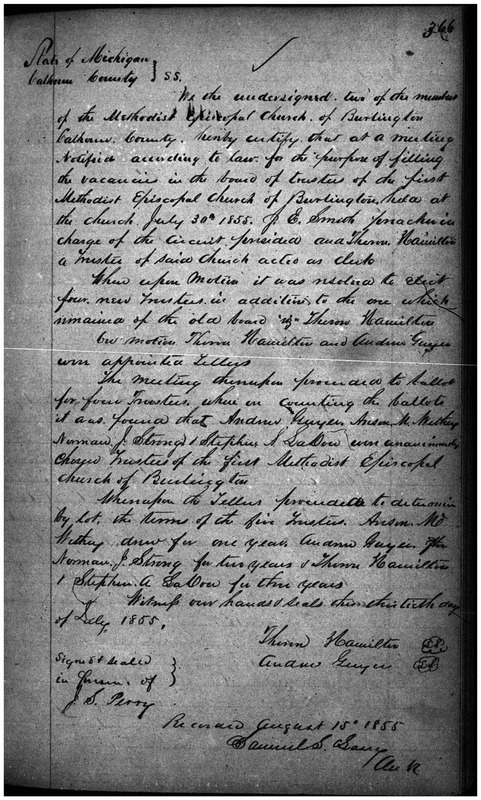 366
State of Michigan
Calhoun County } SS.
We the undersigned two of the members
of the Methodist Episcopal Church of Burlington
Calhoun County hereby certify that at a meeting
Notified according to law for the purpose of filling
the vacancies in the board of trustees of the first
Methodist Episcopal Church of Burlington held at
the church July 30th 1855. J. E. Smith preacher in
charge of the Circuit presided and Theron Hamilton
a Trustee of said Church acted as clerk
When upon Motion it was resolved to elect
four new Trustees in addition to the one which
remained of the old board viz Theron Hamilton
On motion Theron Hamilton and Andrew Guyer
were appointed Tellers
The meeting thereupon proceeded to ballot
for four Trustees when on counting the ballots
it was found that Andrew Guyer Anson M.
Norman J. Strong & Stephen A. were unanimously
Chosen Trustees of the first Methodist Episcopal
Church of Burlington
Whereupon the Tellers proceeded to determine
by lot the terms of the five Trustees. Anson M
drew for one year. Andrew Guyer
Norman J. Strong for two years & Theron Hamilton
& Stephen A. for three years
Witness our hands & seals this thirtieth day
of July 1855.
Theron Hamilton
Andrew Guyer
Signed & sealed
in presence of
J. S. Perry
Recorded August 15th 1855
Samuel S.